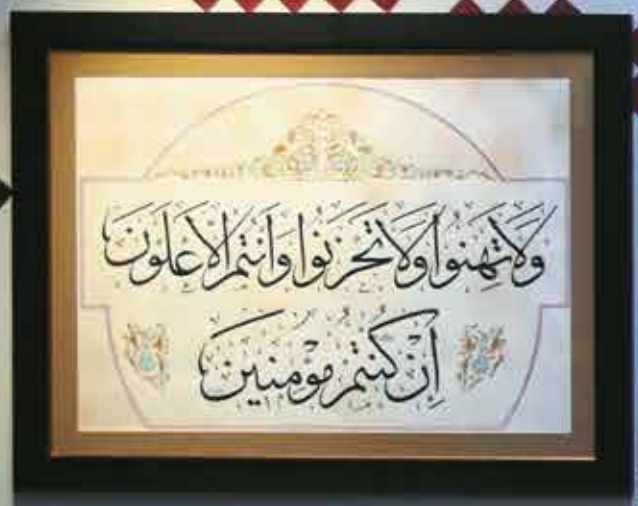 وَلَا تَهِنُوا وَلَا تَحْزَنُوا وَأَنتُمُ الْأَعْلَوْنَ
إِن كُنتُم مُّؤْمِنِينَ